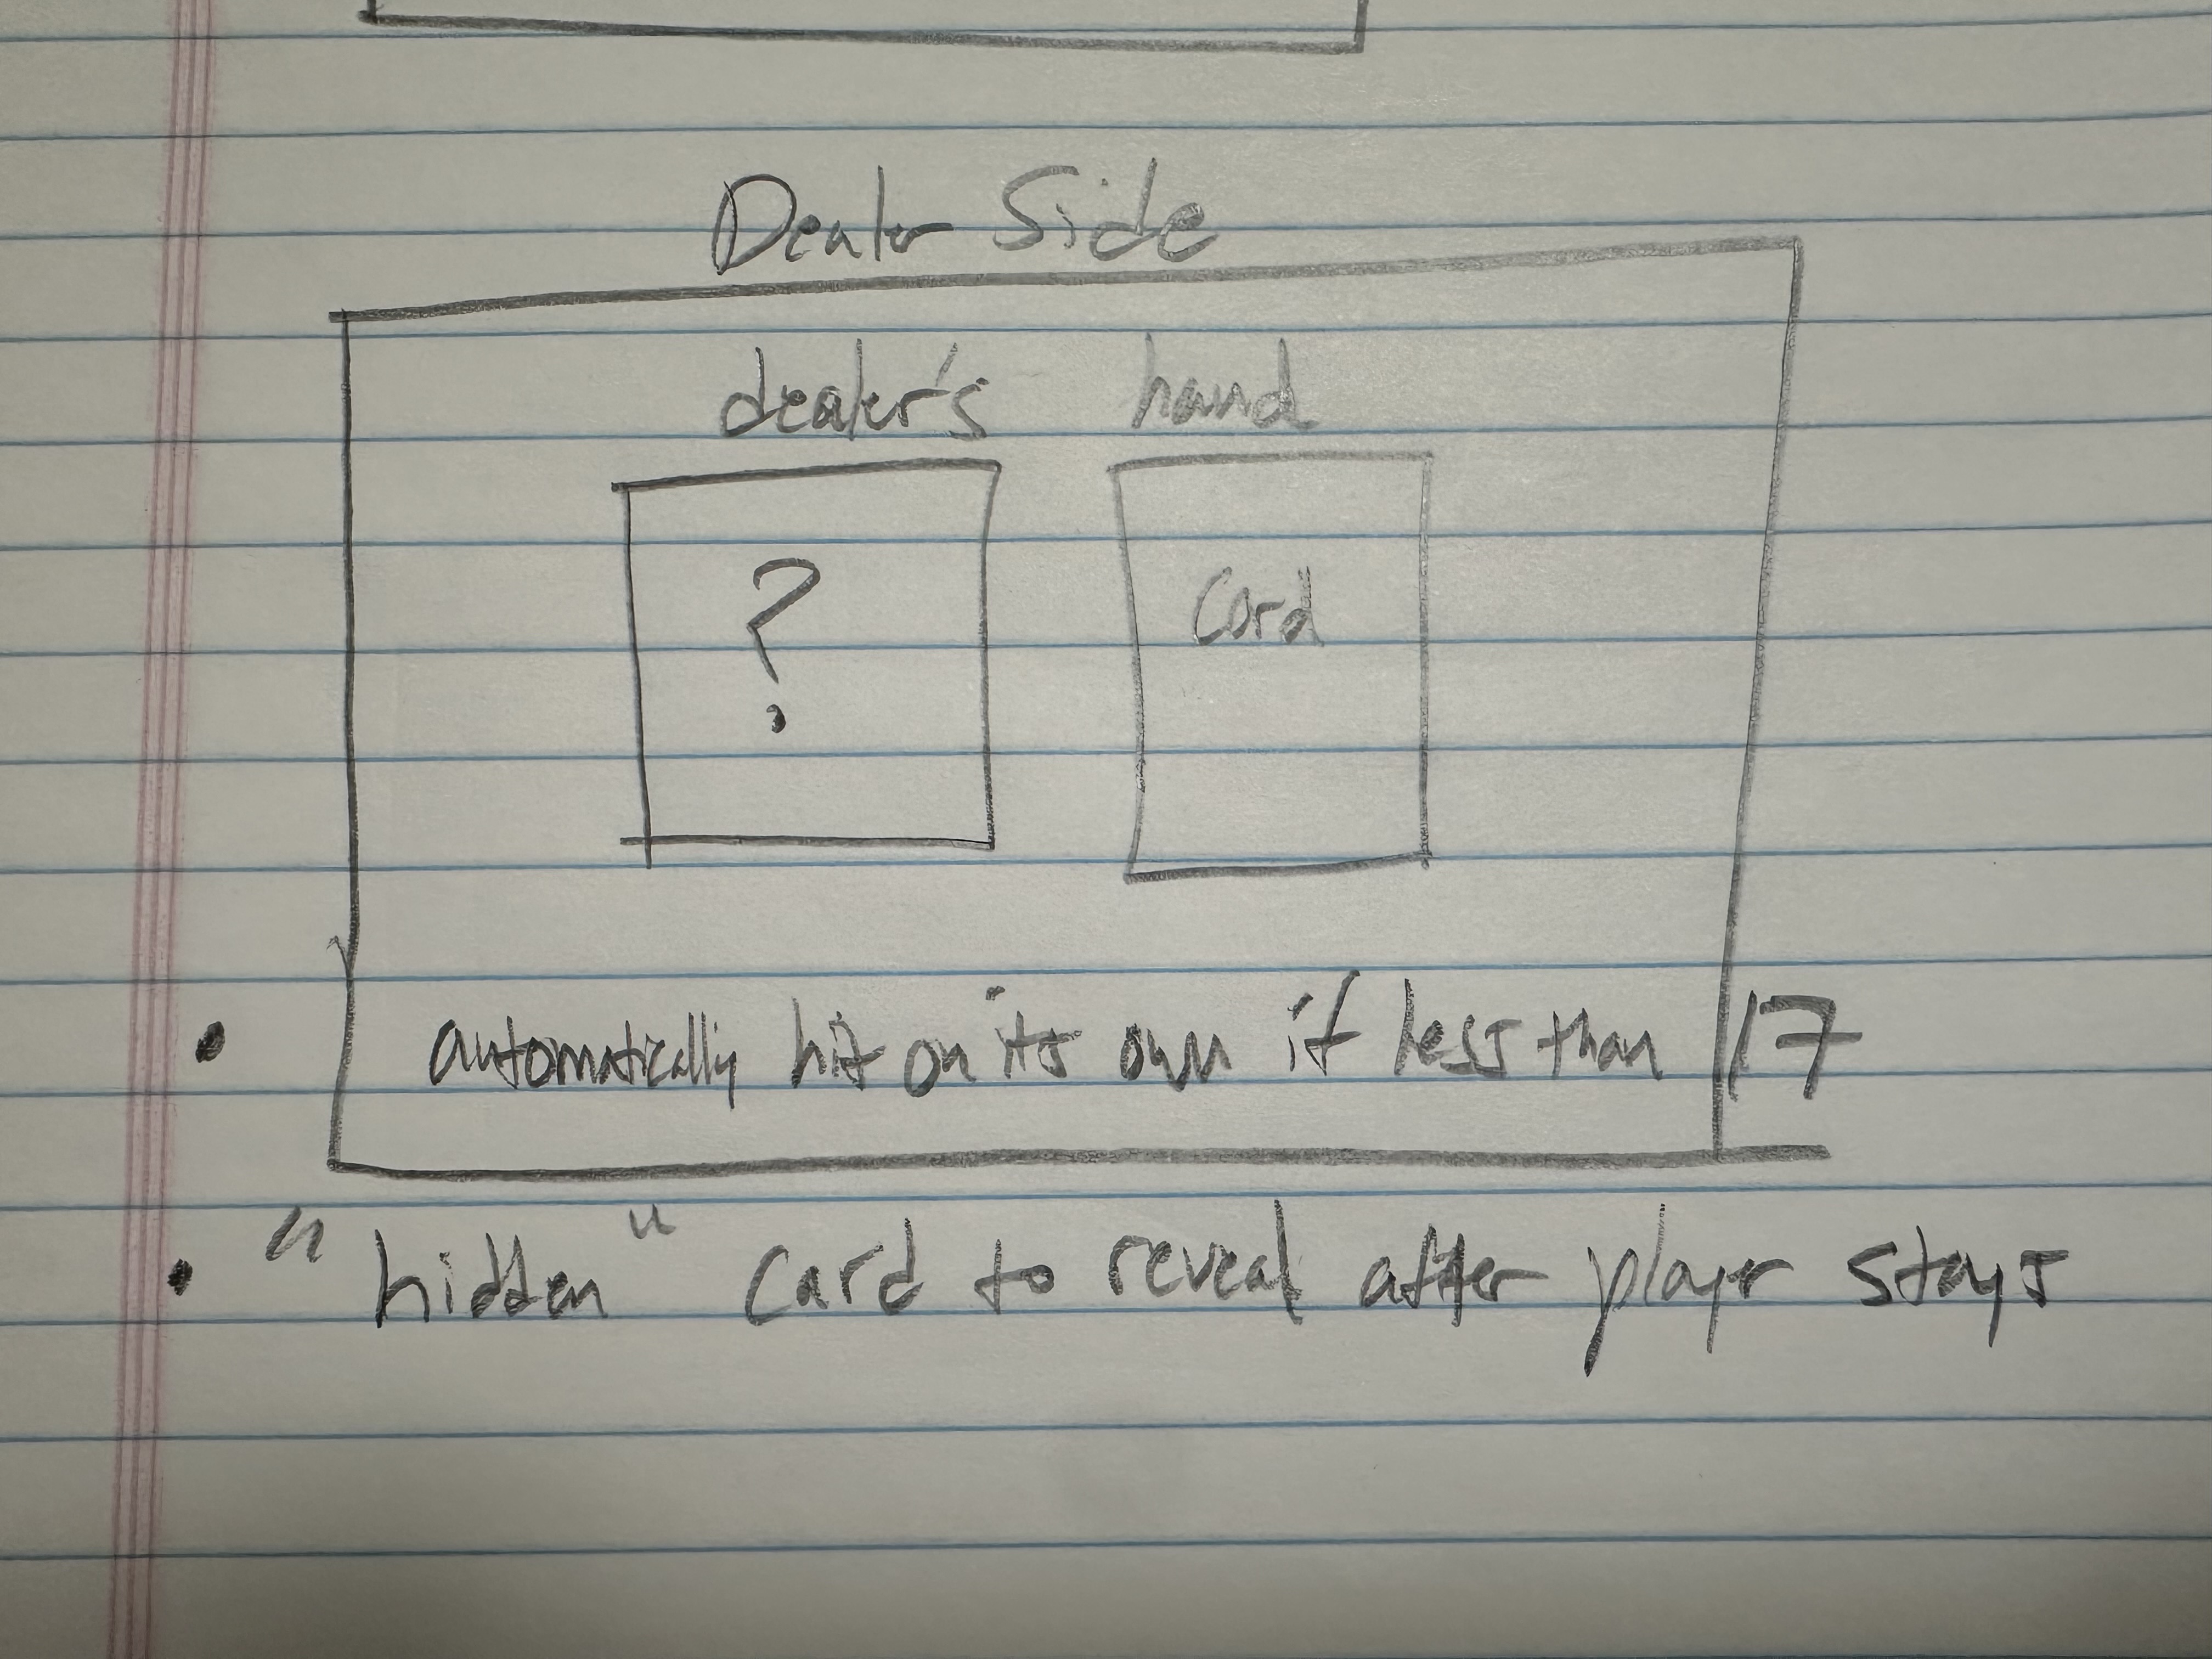 Dealer Side
dealer's hand
?
Card
• automatically hit on its own if less than 17
• "hidden" card to reveal after player stays